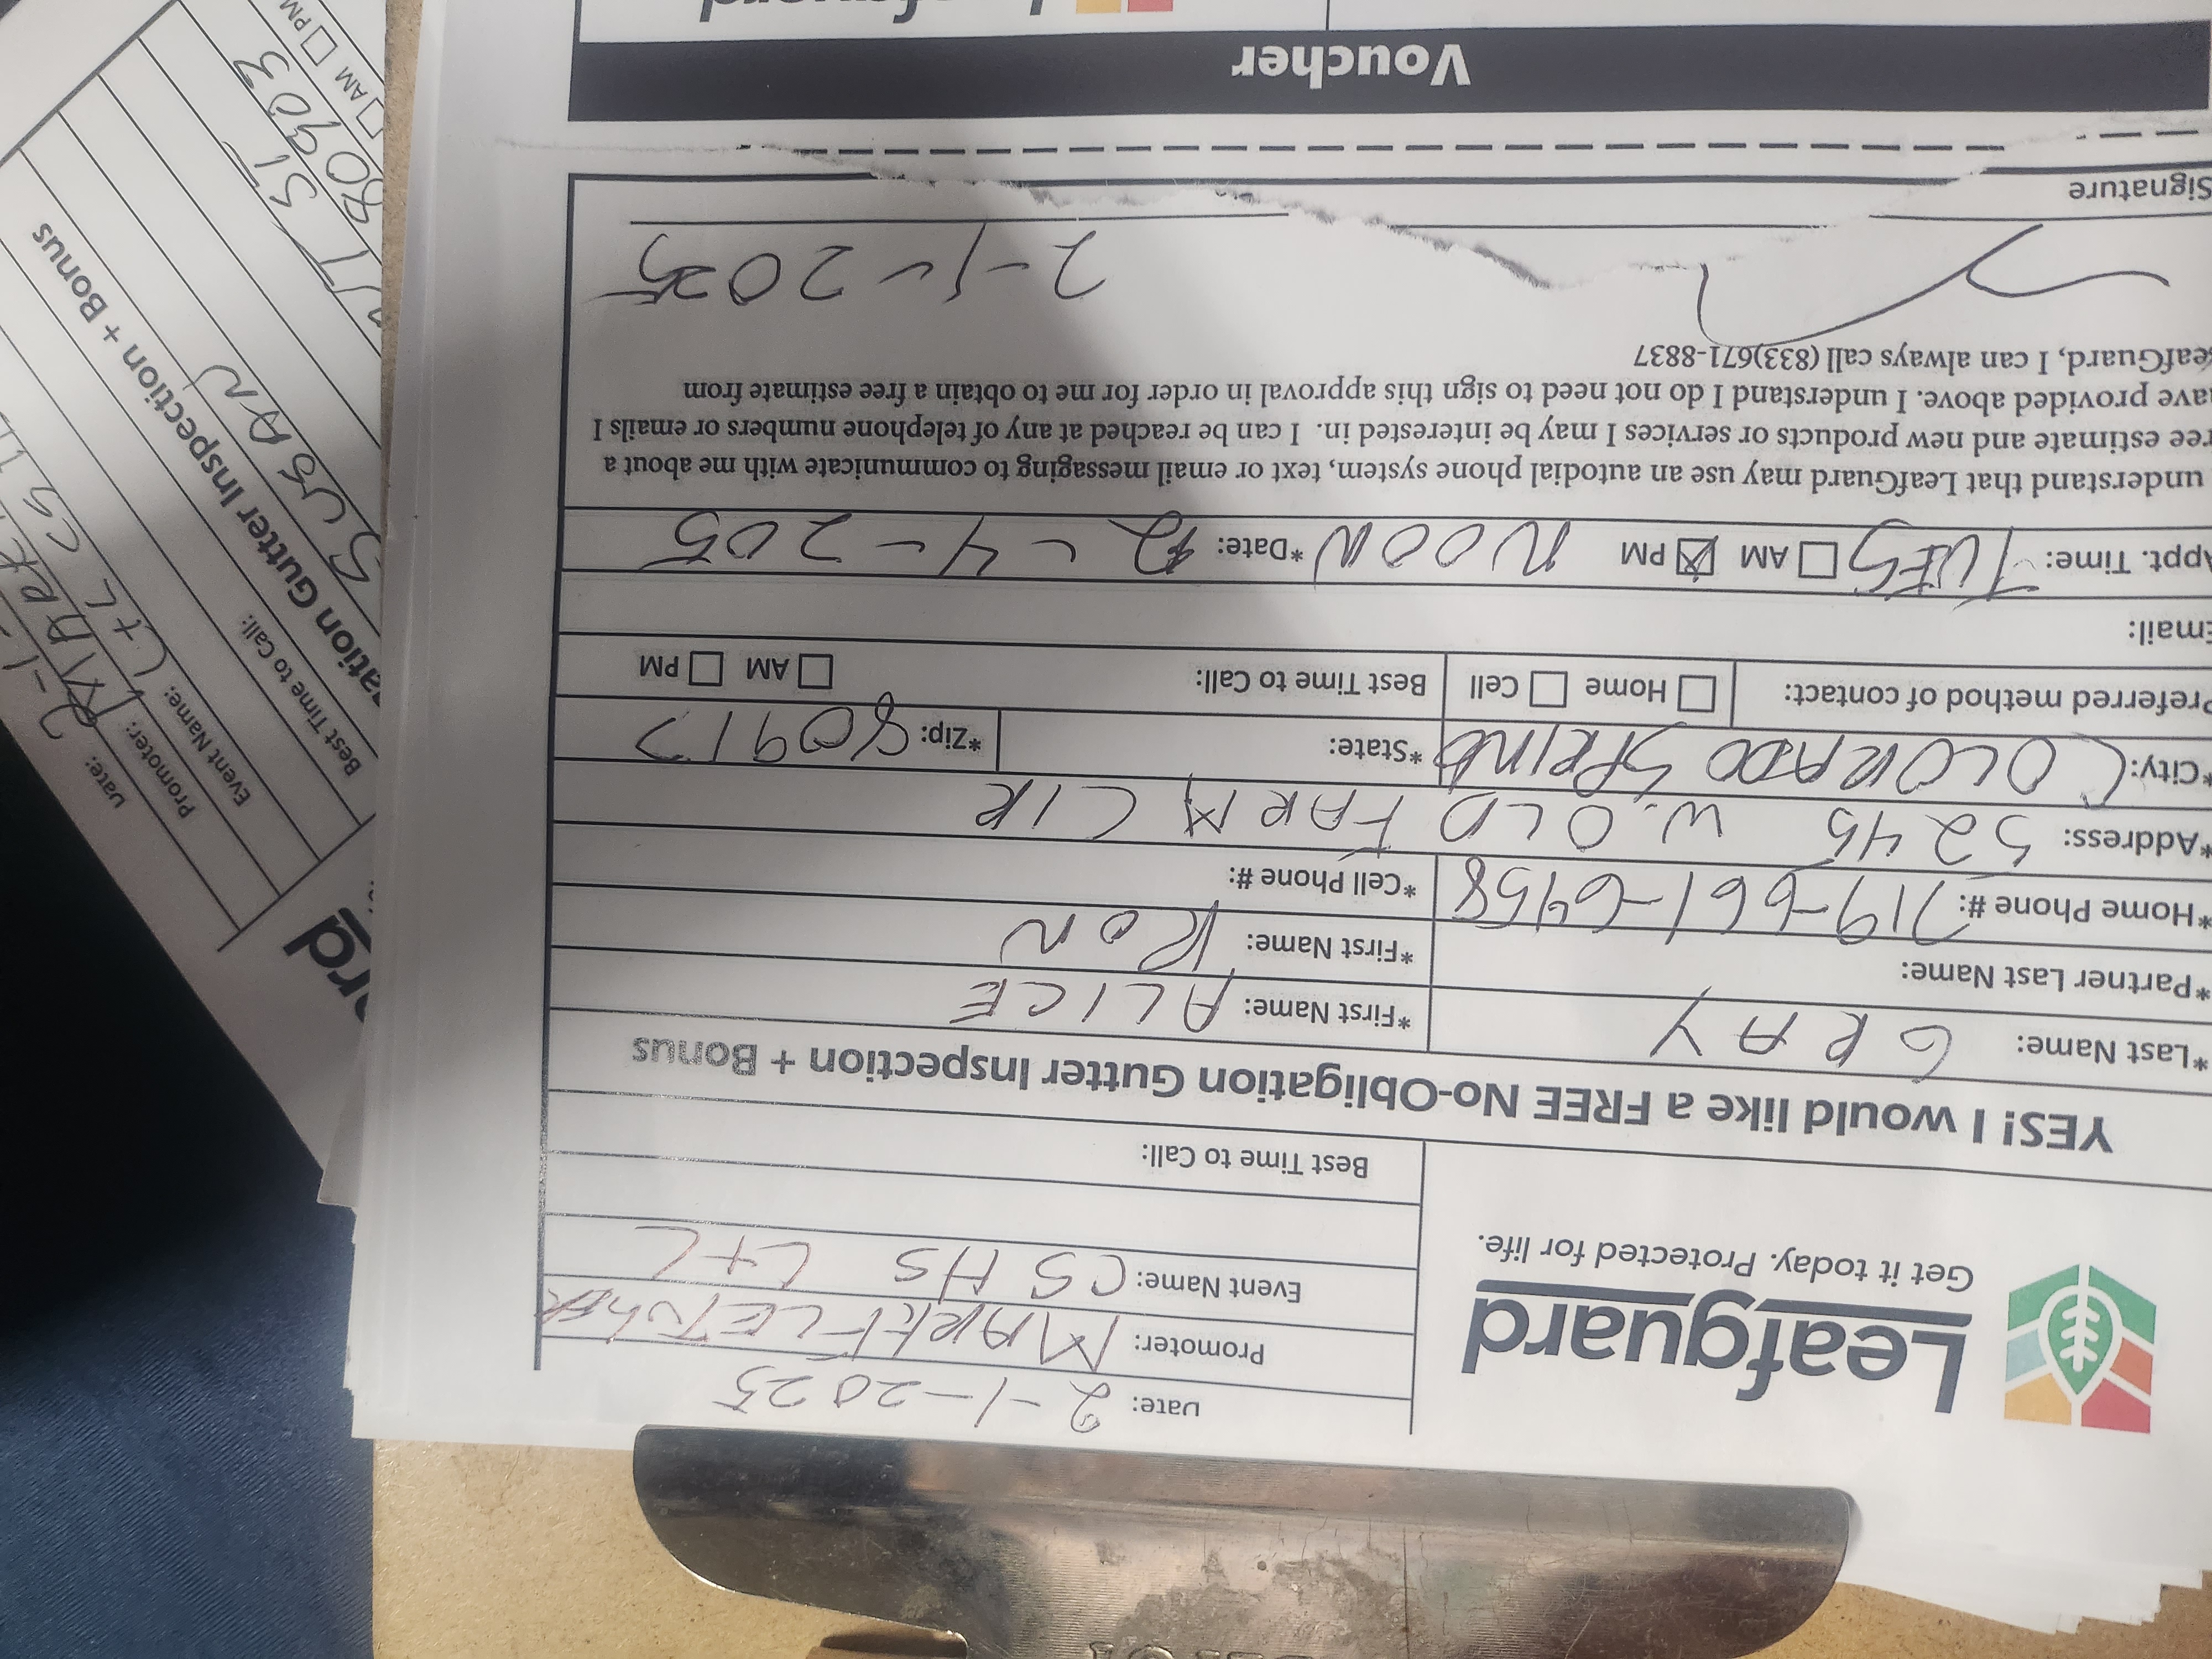 Leafguard
Get it today. Protected for life.
Date: 2-1-2025
Promoter: MARK
Event Name: CS HS L+L
Best Time to Call:
YES! I would like a FREE No-Obligation Gutter Inspection + Bonus
*Last Name: GRAY *First Name: ALICE
*Partner Last Name: *First Name: RON
*Home Phone #: 719-661-6458 *Cell Phone #:
*Address: 5245 W. OLD FARM CIR
*City: COLORADO SPRING *State: *Zip: 80917
Preferred method of contact: Home Cell Best Time to Call: AM PM
Email:
Appt. Time: TUES AM PM NOON *Date: 2-4-205
understand that LeafGuard may use an autodial phone system, text or email messaging to communicate with me about a
ree estimate and new products or services I may be interested in. I can be reached at any of telephone numbers or emails I
ave provided above. I understand I do not need to sign this approval in order for me to obtain a free estimate from
eafGuard, I can always call (833)671-8837
2-1-2025
Signature
Voucher
Date: 2-1-
Promoter: MARK
Event Name: L+L CS
Best Time to Call:
ation Gutter Inspection + Bonus
SUSAN
ST
80903
AM PM